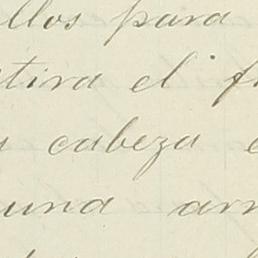 llos para
tira el
cabeza
una